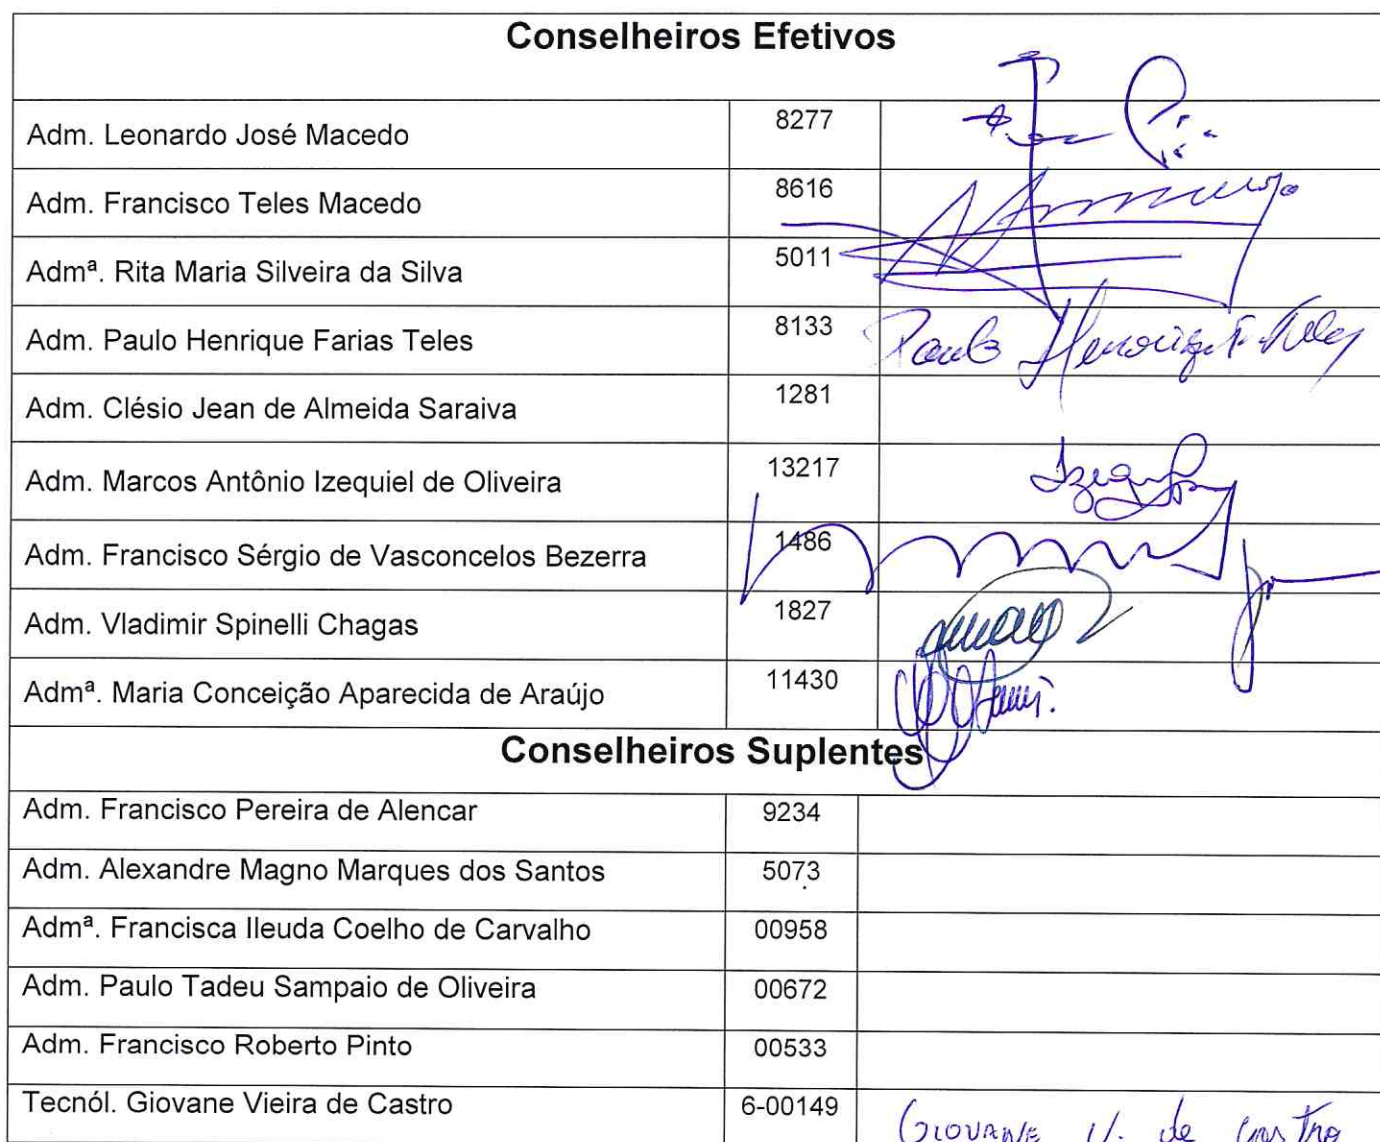 Conselheiros Efetivos
Adm. Leonardo José Macedo 8277
Adm. Francisco Teles Macedo 8616
Admª. Rita Maria Silveira da Silva 5011
Adm. Paulo Henrique Farias Teles 8133 Paulo Henrique F. Teles
Adm. Clésio Jean de Almeida Saraiva 1281
Adm. Marcos Antônio Izequiel de Oliveira 13217
Adm. Francisco Sérgio de Vasconcelos Bezerra 1486
Adm. Vladimir Spinelli Chagas 1827
Admª. Maria Conceição Aparecida de Araújo 11430
Conselheiros Suplentes
Adm. Francisco Pereira de Alencar 9234
Adm. Alexandre Magno Marques dos Santos 5073
Admª. Francisca Ileuda Coelho de Carvalho 00958
Adm. Paulo Tadeu Sampaio de Oliveira 00672
Adm. Francisco Roberto Pinto 00533
Tecnól. Giovane Vieira de Castro 6-00149 GIOVANE V. de Castro